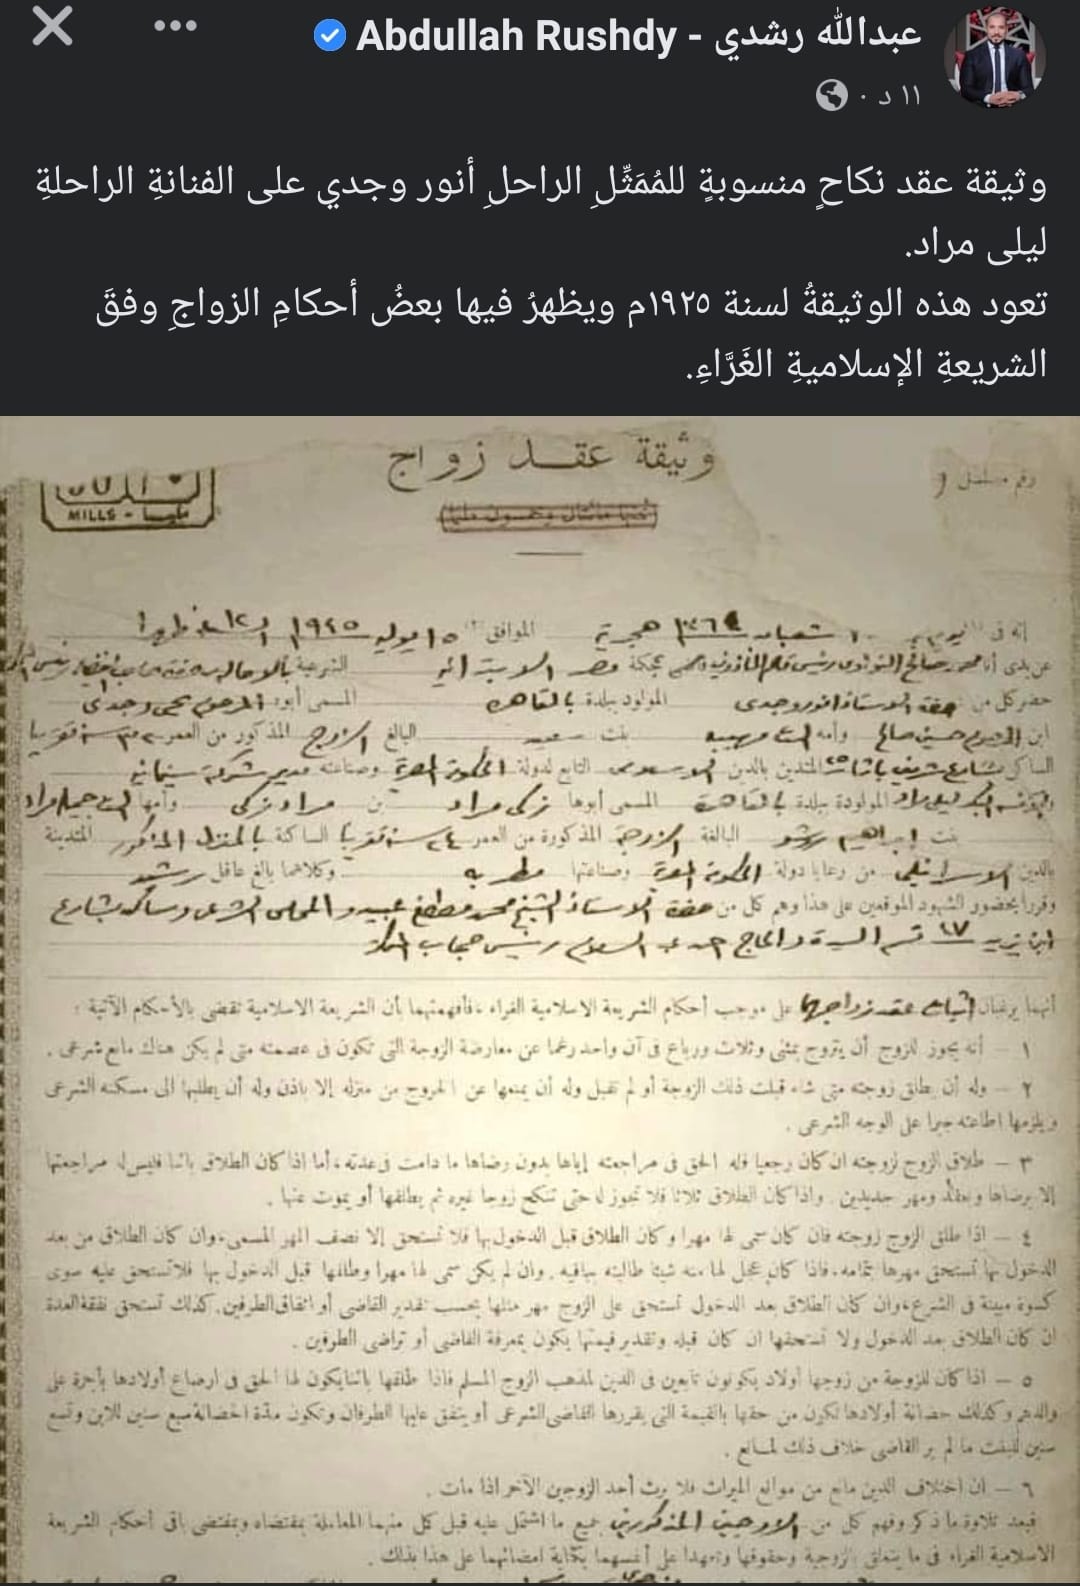 عبدالله رشدي - Abdullah Rushdy
١١ د
وثيقة عقد نكاحٍ منسوبةٍ للمُمَثِّلِ الراحلِ أنور وجدي على الفنانةِ الراحلةِ
ليلى مراد.
تعود هذه الوثيقةُ لسنة ١٩٢٥م ويظهرُ فيها بعضُ أحكامِ الزواجِ وفقَ
الشريعةِ الإسلاميةِ الغَرَّاءِ.
وثيقة عقد زواج
رقم مسلسل
MILLS - مليما
إنه في يوم شعبان ١٣٦٤ هجرية الموافق ١٥ يوليه ١٩٤٥
عن يدى أنا محمد صالح بمحكمة مصر الابتدائية الشرعية
حضر كل من حضرة الاستاذ انور وجدى المولود ببلدة بالقاهرة المسمى أبوه المرحوم يحيى وجدى
ابن المرحوم حسين صالح وأمه الست مهيبه بنت سعيد البالغ الزوج المذكور من العمر
الساكن بشارع شريف باشا المتدين بالدين الاسلامى التابع لدولة الحكومة المصرية وصناعته مدير شركة سينمائية
ليلى مراد المولودة ببلدة بالقاهرة المسمى أبوها زكى مراد بن مراد زكى وأمها الست جميله مراد
بنت إبراهيم روشو البالغة الزوجة المذكورة من العمر ٢٤ سنة تقريبا الساكنة بالمنزل المذكور المتدينة
بالدين الاسرائيلى من رعايا دولة الحكومة المصرية وصناعتها مطربه وكلاهما بالغ عاقل رشيد
وقررا بحضور الشهود الموقعين على هذا وهم كل من حضرة الاستاذ الشيخ محمد مصطفى المحامى الشرعى وساكن بشارع
١٧ قسم السيدة والحاج
أنهما يرغبان اثبات عقد زواجهما على موجب أحكام الشريعة الاسلامية الغراء، فأفهمتهما بأن الشريعة الاسلامية تقضى بالأحكام الآتية :
١ - أنه يجوز للزوج أن يتزوج بمثنى وثلاث ورباع فى آن واحد رغما عن معارضة الزوجة التى تكون فى عصمته متى لم يكن هناك مانع شرعى .
٢ - وله أن يطلق زوجته متى شاء قبلت ذلك الزوجة أو لم تقبل وله أن يمنعها عن الخروج من منزله إلا باذن وله أن يطلبها الى مسكنه الشرعى
ويلزمها اطاعته جبرا على الوجه الشرعى .
٣ - طلاق الزوج لزوجته ان كان رجعيا فله الحق فى مراجعته إياها بدون رضاها ما دامت فى عدته، أما اذا كان الطلاق بائنا فليس له مراجعتها
إلا برضاها وبعقد ومهر جديدين . واذا كان الطلاق ثلاثا فلا تجوز له حتى تنكح زوجا غيره ثم يطلقها أو يموت عنها .
٤ - اذا طلق الزوج زوجته فان كان سمى لها مهرا وكان الطلاق قبل الدخول بها فلا تستحق إلا نصف المهر المسمى، وان كان الطلاق من بعد
الدخول بها تستحق مهرها بتمامه، فاذا كان عجل لها منه شيئا طالبته بباقيه . وان لم يكن سمى لها مهرا وطلقها قبل الدخول بها فلا تستحق عليه سوى
كسوة مبينة فى الشرع، وان كان الطلاق بعد الدخول تستحق على الزوج مهر مثلها بحسب تقدير القاضى أو اتفاق الطرفين . كذلك تستحق نفقة العدة
ان كان الطلاق بعد الدخول ولا تستحقها ان كان قبله وتقدير قيمتها يكون بمعرفة القاضى أو تراضى الطرفين .
٥ - اذا كان للزوجة من زوجها أولاد يكونون تابعين فى الدين لمذهب الزوج المسلم فاذا طلقها بائنا يكون لها الحق فى ارضاع أولادها بأجرة على
والدهم وكذلك حضانة أولادها تكون من حقها بالقيمة التى يقررها القاضى الشرعى أو يتفق عليها الطرفان وتكون مدة الحضانة سبع سنين للابن وتسع
سنين للبنت ما لم ير القاضى خلاف ذلك لمانع .
٦ - ان اختلاف الدين مانع من موانع الميراث فلا يرث أحد الزوجين الآخر اذا مات .
فبعد تلاوة ما ذكر وفهم كل من الزوجين المذكورين جميع ما اشتمل عليه قبل كل منهما المعاملة بمقتضاه وبمقتضى باقى أحكام الشريعة
الاسلامية الغراء فى ما يتعلق بالزوجية وحقوقها وتعهدا على أنفسهما بكتابة امضائهما على هذا بذلك .